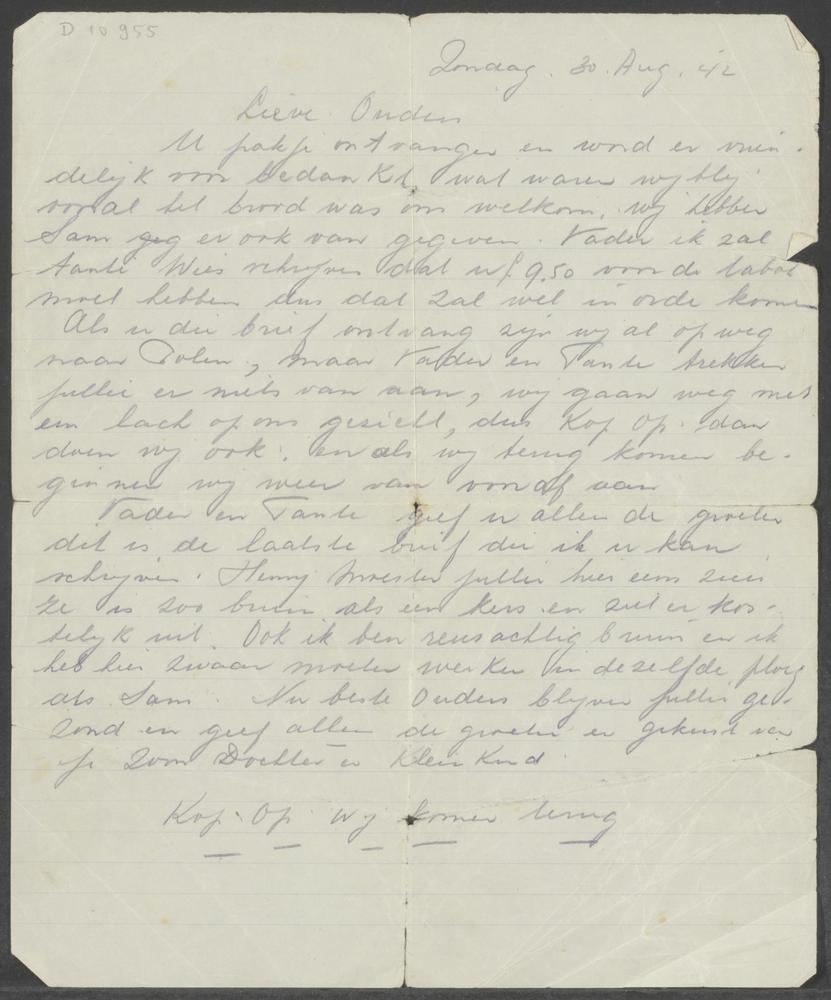 D 10955
Zondag. 30. Aug. 42
Lieve Ouders
U pakje ontvangen en word er vrien-
delijk voor bedankt, wat waren wij blij
vooral het brood was ons welkom. Wij hebben
Sam geg er ook van gegeven. Vader ik zal
tante Wies schrijven dat u f 9.50 voor de tabak
moet hebben dus dat zal wel in orde komen
Als u die brief ontvang zijn wij al op weg
naar Polen, maar Vader en Tante trekken
jullie er niets van aan, wij gaan weg met
een lach op ons gezicht, dus Kop Op. dan
doen wij ook. en als wij terug komen be-
ginnen wij weer van voor af aan
Vader en Tante geef u allen de groeten
dit is de laatste brief die ik u kan
schrijven. Henny moesten jullie hier eens zien
ze is zoo bruin als een kers en ziet er kos-
telijk uit. Ook ik ben reusachtig bruin en ik
heb hier zwaar moeten werken in dezelfde ploeg
als Sam. Nu beste Ouders blijven jullie ge-
zond en geef allen de groeten en gekust van
je Zoon Dochter en Klein Kind
Kop. Op. Wij komen terug